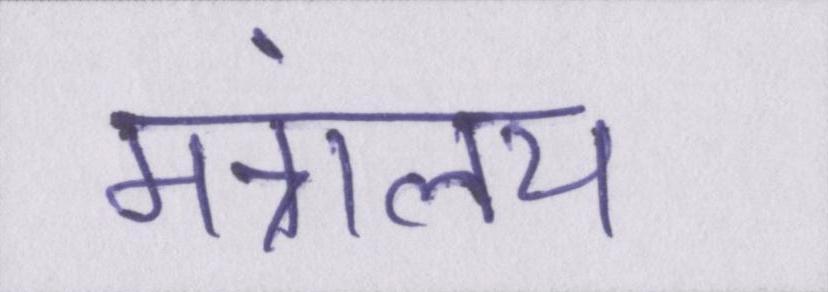 मत्रांलय